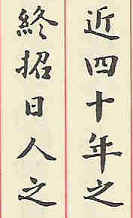 近四十年之
終招日人之